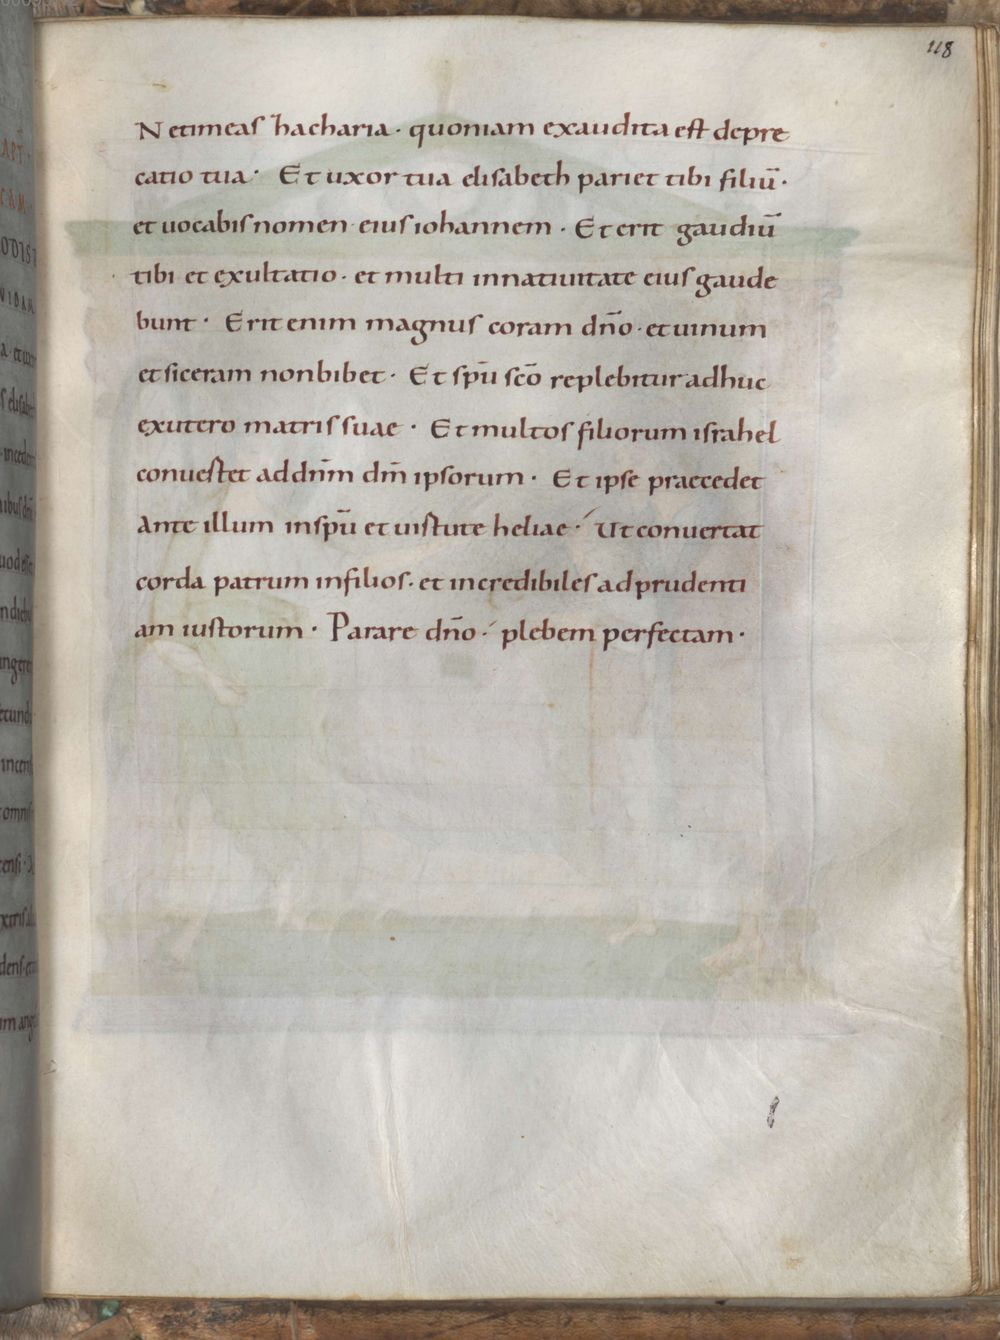 118
Ne timeas hacharia · quoniam exaudita est depre
catio tua · Et uxor tua elisabeth pariet tibi filiū ·
et uocabis nomen eius iohannem · Et erit gaudiū
tibi et exultatio · et multi in natiuitate eius gaude
bunt · Erit enim magnus coram dn̄o · et uinum
et siceram non bibet · Et spū scō replebitur adhuc
ex utero matris suae · Et multos filiorum israhel
conuertet ad dn̄m dm̄ ipsorum · Et ipse praecedet
Ante illum in spū et uirtute heliae · Ut conuertat
corda patrum in filios · et incredibiles ad prudenti
am iustorum · Parare dn̄o · plebem perfectam ·